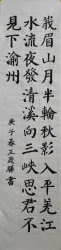 峩眉山月半輪秋影入平羌江
水流夜發清溪向三峽思君不
見下渝州
庚子春王茂驊書